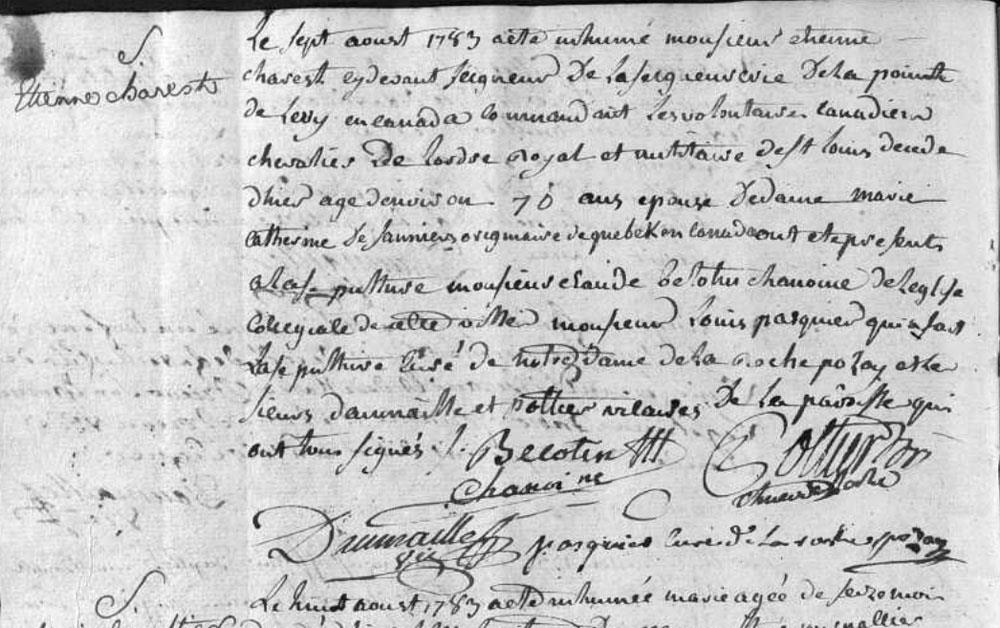 S.
Etienne charest
Le sept aoust 1783 a eté inhumé monsieur etienne
charest cy devant seigneur de la seigneurie de la pointe
de levy en canada commandant les volontaires canadiens
chevalier de lordre royal et militaire de st louis decede
dhier age denviron 70 ans epoux de dame marie
catherine de originaire de quebek en canada ont ete presents
a la sepulture monsieur claude becotin chanoine de leglise
collegiale de cette ville monsieur louis pasquier qui a fait
la sepulture curé de notre dame de la roche pozay et les
sieurs daumaille et pottier vicaires de la paroisse qui
ont tous signés
Becotin
Chanoine
Daumaille
vic
pasquier curé de la roche pozay
S.
Le huit aoust 1783 a eté inhumée marie agée de seize mois